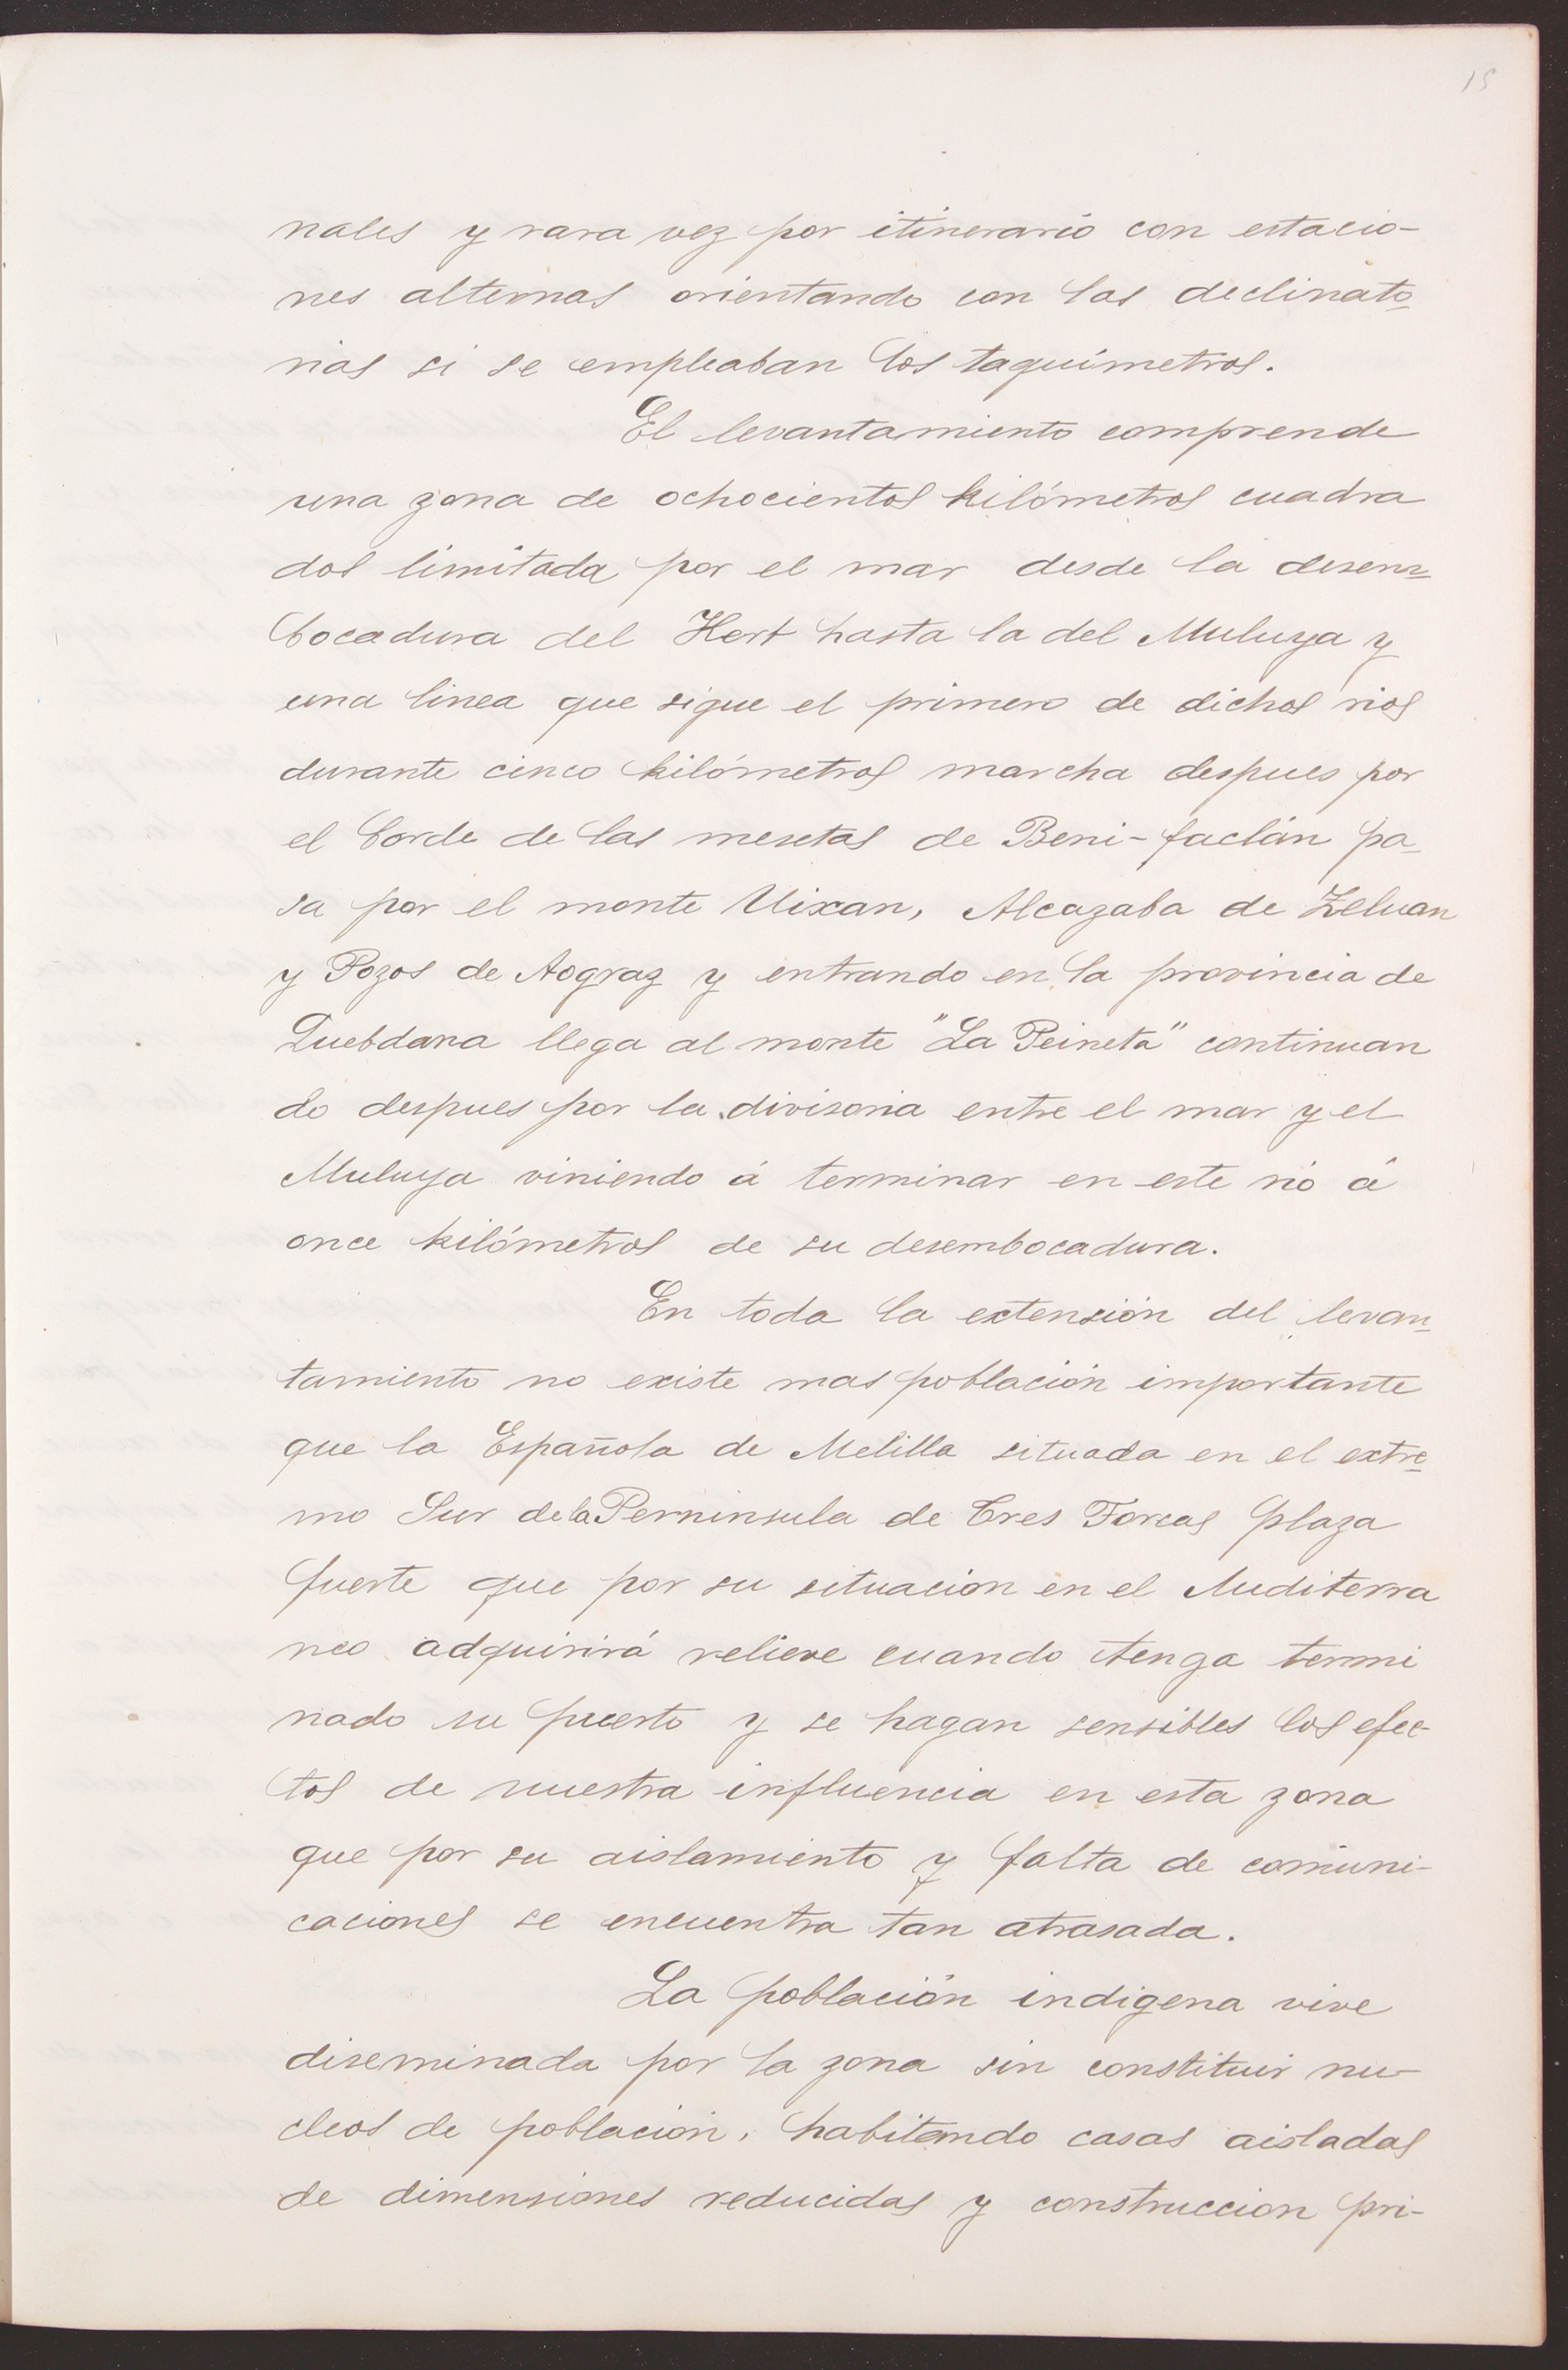 15
nales y rara vez por itinerario con estacio-
nes alternas orientando con las declinato-
rias si se empleaban los taquímetros.
El levantamiento comprende
una zona de ochocientos kilómetros cuadra
dos limitada por el mar desde la desem-
bocadura del Kert hasta la del Muluya y
una linea que sigue el primero de dichos rios
durante cinco kilómetros marcha despues por
el borde de las mesetas de Beni-faclán pa-
sa por el monte Uixan, Alcazaba de Zeluan
y Pozos de Aograz y entrando en la provincia de
Quebdana llega al monte "La Peineta" continuan
do despues por la divisoria entre el mar y el
Muluya viniendo á terminar en este rió á
once kilómetros de su desembocadura.
En toda la extensión del levan-
tamiento no existe mas población importante
que la Española de Melilla situada en el extre-
mo Sur de la Perninsula de Tres Forcas plaza
fuerte que por su situacion en el Mediterra
neo adquirirá relieve cuando tenga termi
nado su puerto y se hagan sensibles los efec-
tos de nuestra influencia en esta zona
que por su aislamiento y falta de comuni-
caciones se encuentra tan atrasada.
La población indigena vive
diseminada por la zona sin constituir nu-
cleos de población, habitando casas aisladas
de dimensiones reducidas y construccion pri-